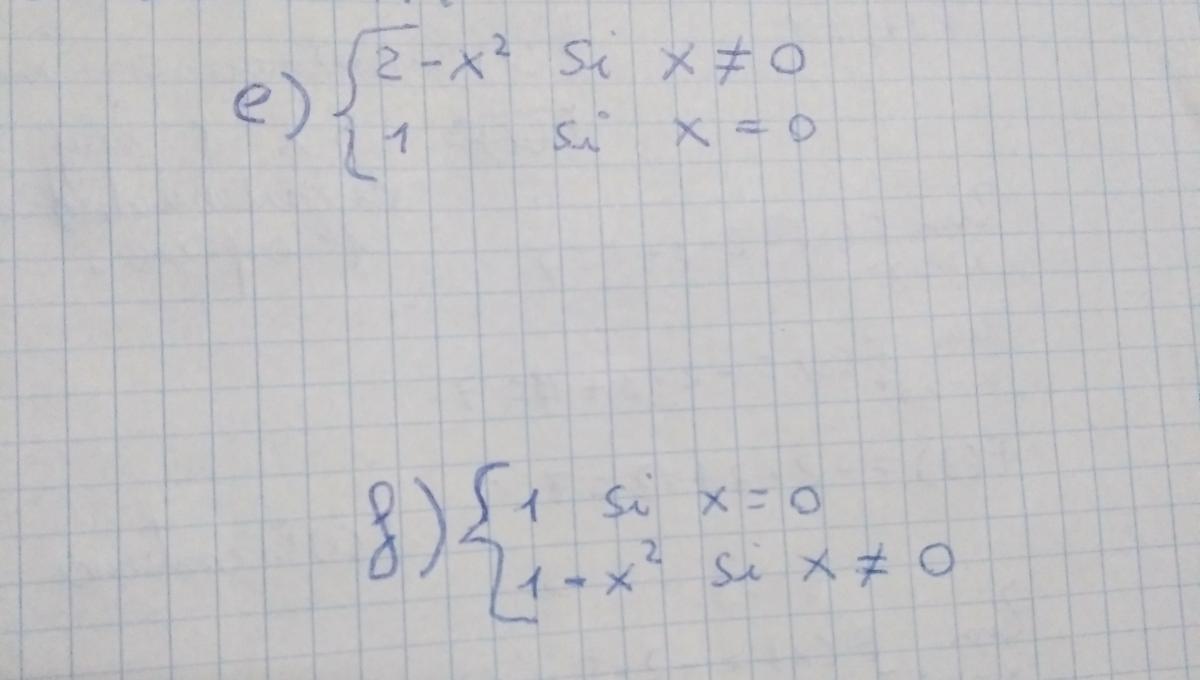 e) { 2 - x² si x ≠ 0
1 si x = 0
f) { 1 si x = 0
1 - x² si x ≠ 0